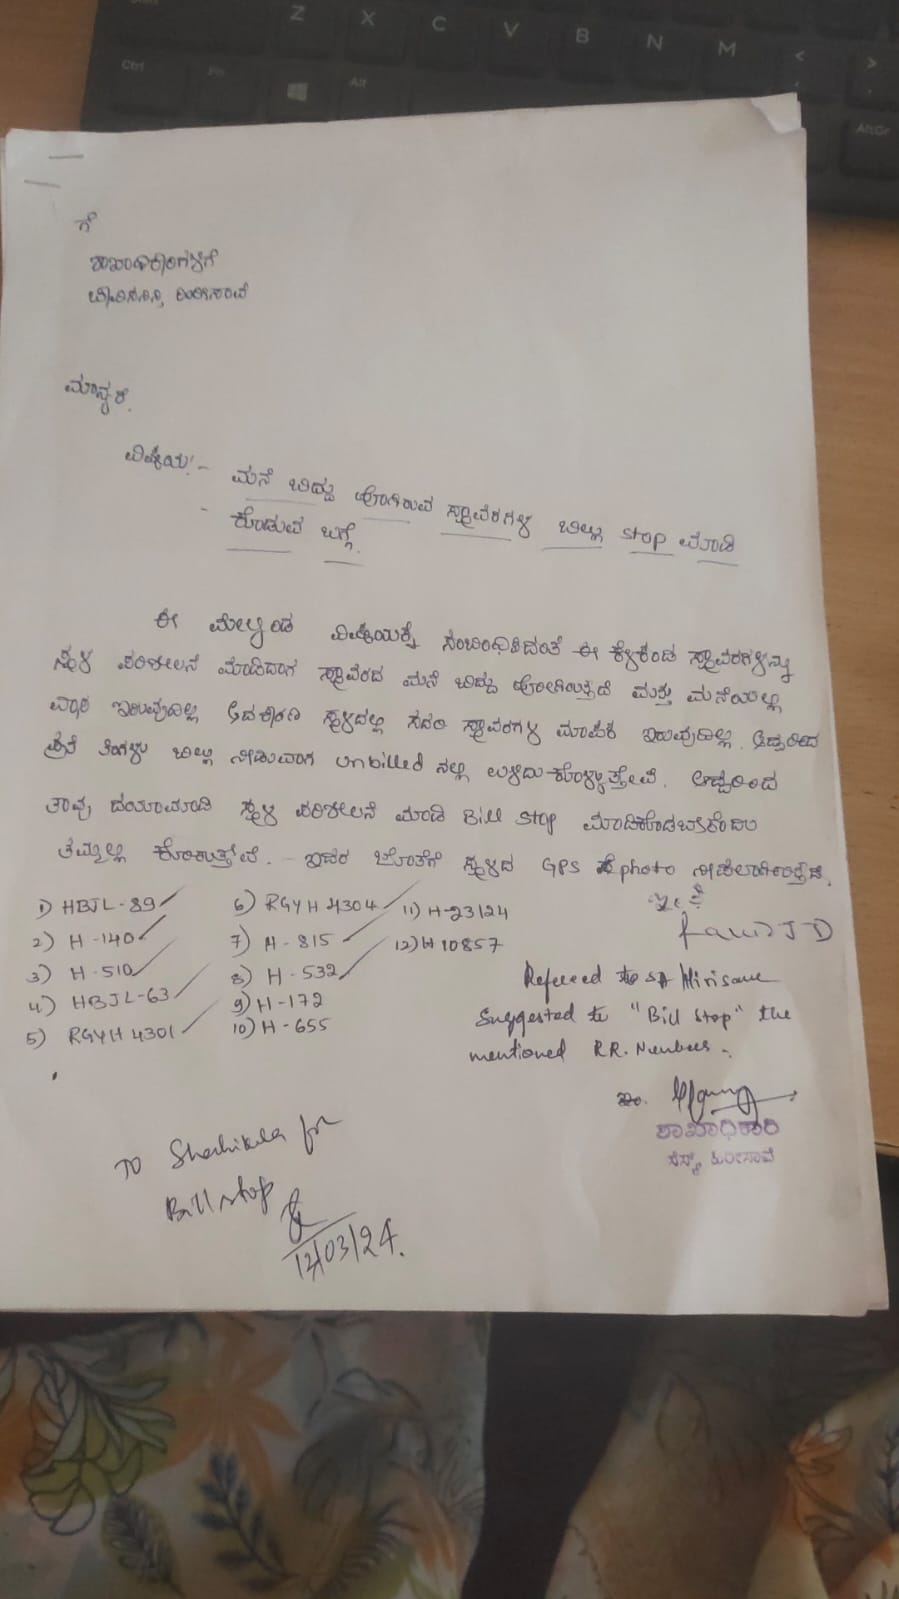 ಗೆ
ಶಾಖಾಧಿಕಾರಿಗಳಿಗೆ
ಹಿರೀಸಾವೆ
ಮಾನ್ಯರೆ.
ವಿಷಯ:- ಮನೆ ಬಿದ್ದು ಹೋಗಿರುವ ಸ್ಥಾವರಗಳ ಬಿಲ್ಲು stop ಮಾಡಿ
ಕೊಡುವ ಬಗ್ಗೆ.
ಈ ಮೇಲ್ಕಂಡ ವಿಷಯಕ್ಕೆ ಸಂಬಂಧಿಸಿದಂತೆ ಈ ಕೆಳಕಂಡ ಸ್ಥಾವರಗಳನ್ನು
ಸ್ಥಳ ಪರಿಶೀಲನೆ ಮಾಡಿದಾಗ ಸ್ಥಾವರದ ಮನೆ ಬಿದ್ದು ಹೋಗಿರುತ್ತದೆ ಮತ್ತು ಮನೆಯಲ್ಲಿ
ಇರುವುದಿಲ್ಲ ಸ್ಥಳದಲ್ಲಿ ಸದರಿ ಸ್ಥಾವರಗಳ ಮಾಪಕ ಇರುವುದಿಲ್ಲ. ಆದ್ದರಿಂದ
ಪ್ರತಿ ತಿಂಗಳು ಬಿಲ್ಲು ನೀಡುವಾಗ unbilled ನಲ್ಲಿ ಉಳಿದುಕೊಳ್ಳುತ್ತೇವೆ. ಆದ್ದರಿಂದ
ತಾವು ದಯಮಾಡಿ ಸ್ಥಳ ಪರಿಶೀಲನೆ ಮಾಡಿ Bill stop ಮಾಡಿಕೊಡಬೇಕೆಂದು
ತಮ್ಮಲ್ಲಿ ಕೋರುತ್ತೇವೆ. - ಇದರ ಜೊತೆಗೆ ಸ್ಥಳದ GPS photo ನೀಡಲಾಗಿರುತ್ತದೆ.
1) HBJL-89
2) H-140
3) H-510
4) HBJL-63
5) RGYH 4301
6) RGYH 4304
7) H-815
8) H-532
9) H-172
10) H-655
11) H-23124
12) H 10857
Refered to Hirisave
Suggested to "Bill Stop" the
mentioned R.R. Numbers.
ಶಾಖಾಧಿಕಾರಿ
ಸೆಸ್ಕ್, ಹಿರೀಸಾವೆ
TO Shashikala for
Bill stop
12/03/24.